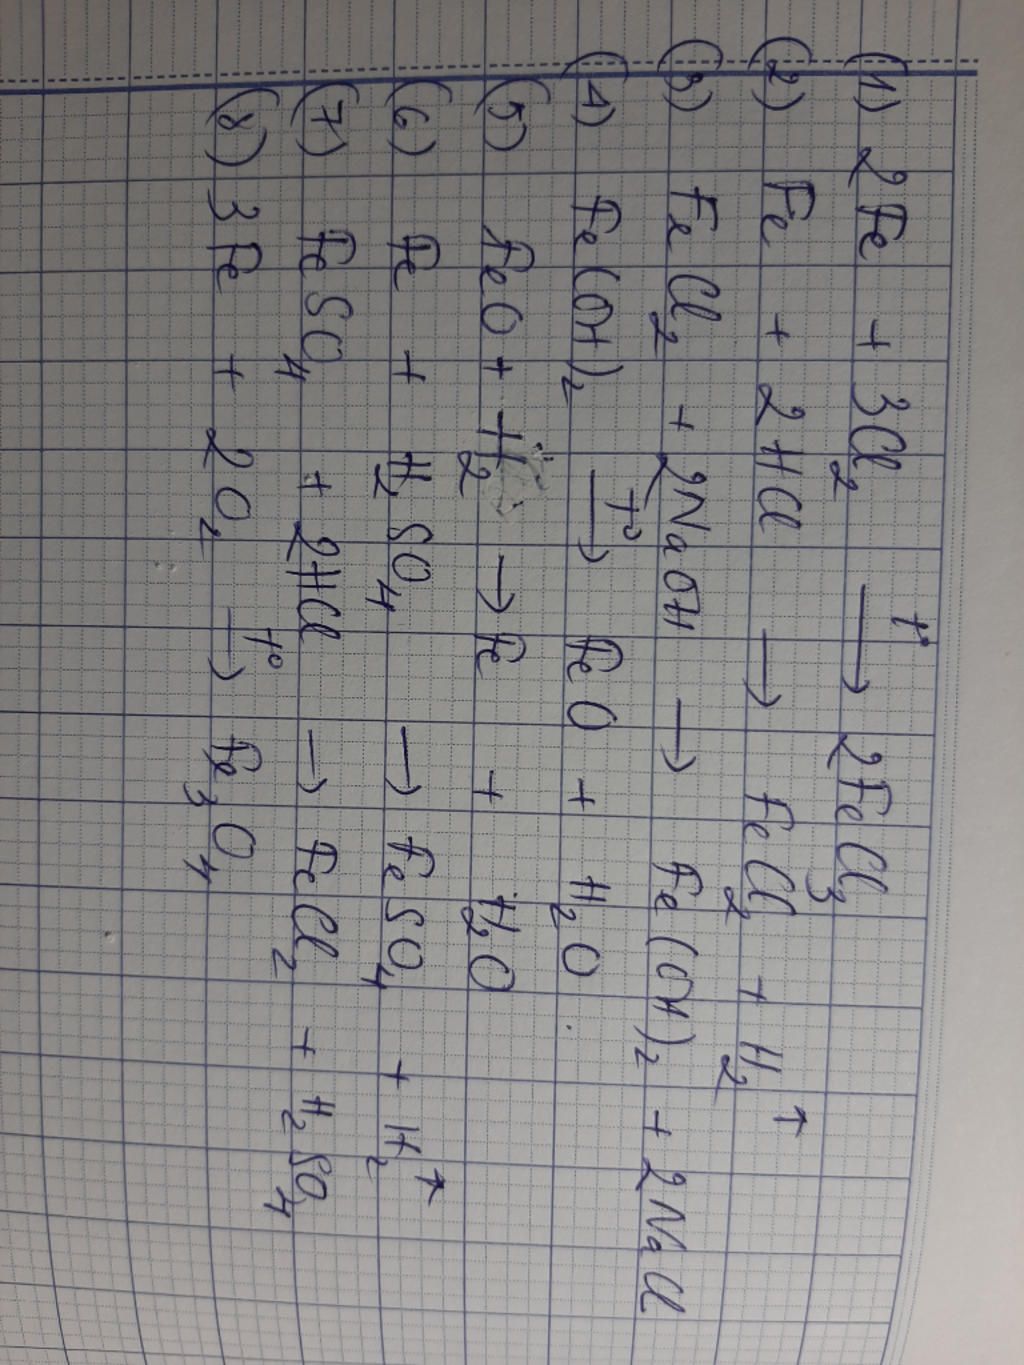 (1) 2Fe + 3Cl₂ →(t°) 2FeCl₃
(2) Fe + 2HCl → FeCl₂ + H₂↑
(3) FeCl₂ + 2NaOH → Fe(OH)₂ + 2NaCl
(4) Fe(OH)₂ →(t°) FeO + H₂O.
(5) FeO + H₂ → Fe + H₂O
(6) Fe + H₂SO₄ → FeSO₄ + H₂↑
(7) FeSO₄ + 2HCl → FeCl₂ + H₂SO₄
(8) 3Fe + 2O₂ →(t°) Fe₃O₄